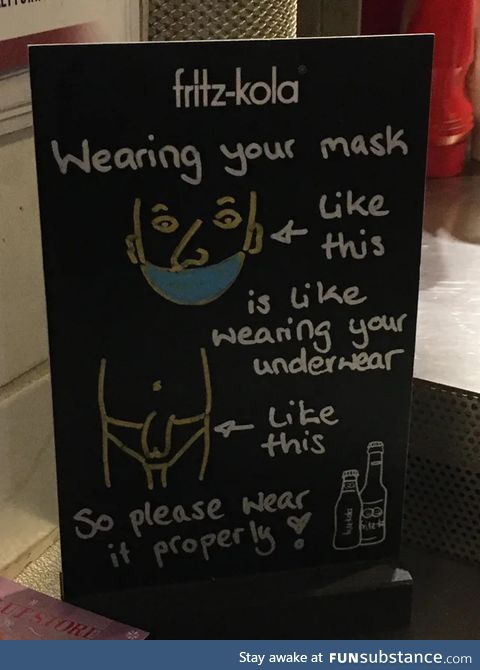 fritz-kola
Wearing your mask
Like
this
is like
wearing your
underwear
Like
this
So please wear
it properly!
STORE
Stay awake at FUNsubstance.com